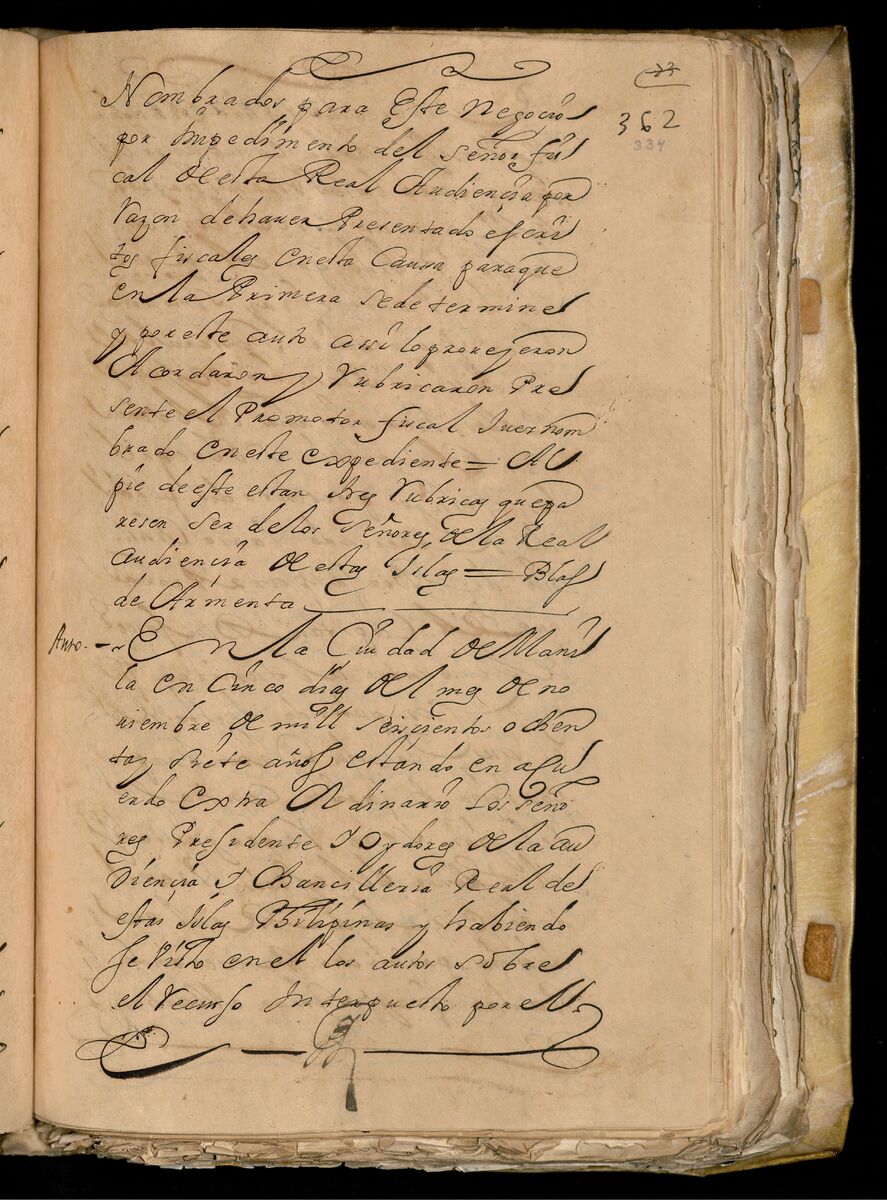 362
334
Nombrados para Este negocio
por Impedimento del señor fis
cal de esta Real Audiencia por
razon dehaver Presentado escri
tos fiscales enesta Causa paraque
en la Primera sedetermine
y poreste auto assi loproveyeron
Acordaron y rubricaron Pre
sente el Promotor fiscal Juez nom
brado eneste expediente = Al
pie deeste estan tres rubricas quepa
resen ser delos señores de la Real
audiencia de estas Islas = Blas
de Armenta
Auto. En la Ciudad de Mani
la en Cinco dias del mes de no
viembre de mill seiscientos ochen
ta y siete años estando en acu
erdo extra Ordinario Los seño
res Presidente Y Oydores de la au
Diencia Y Chancilleria Real de
estas Islas Philipinas y habiendo
se visto enel los autos sobre
el recurso Interpuesto por el